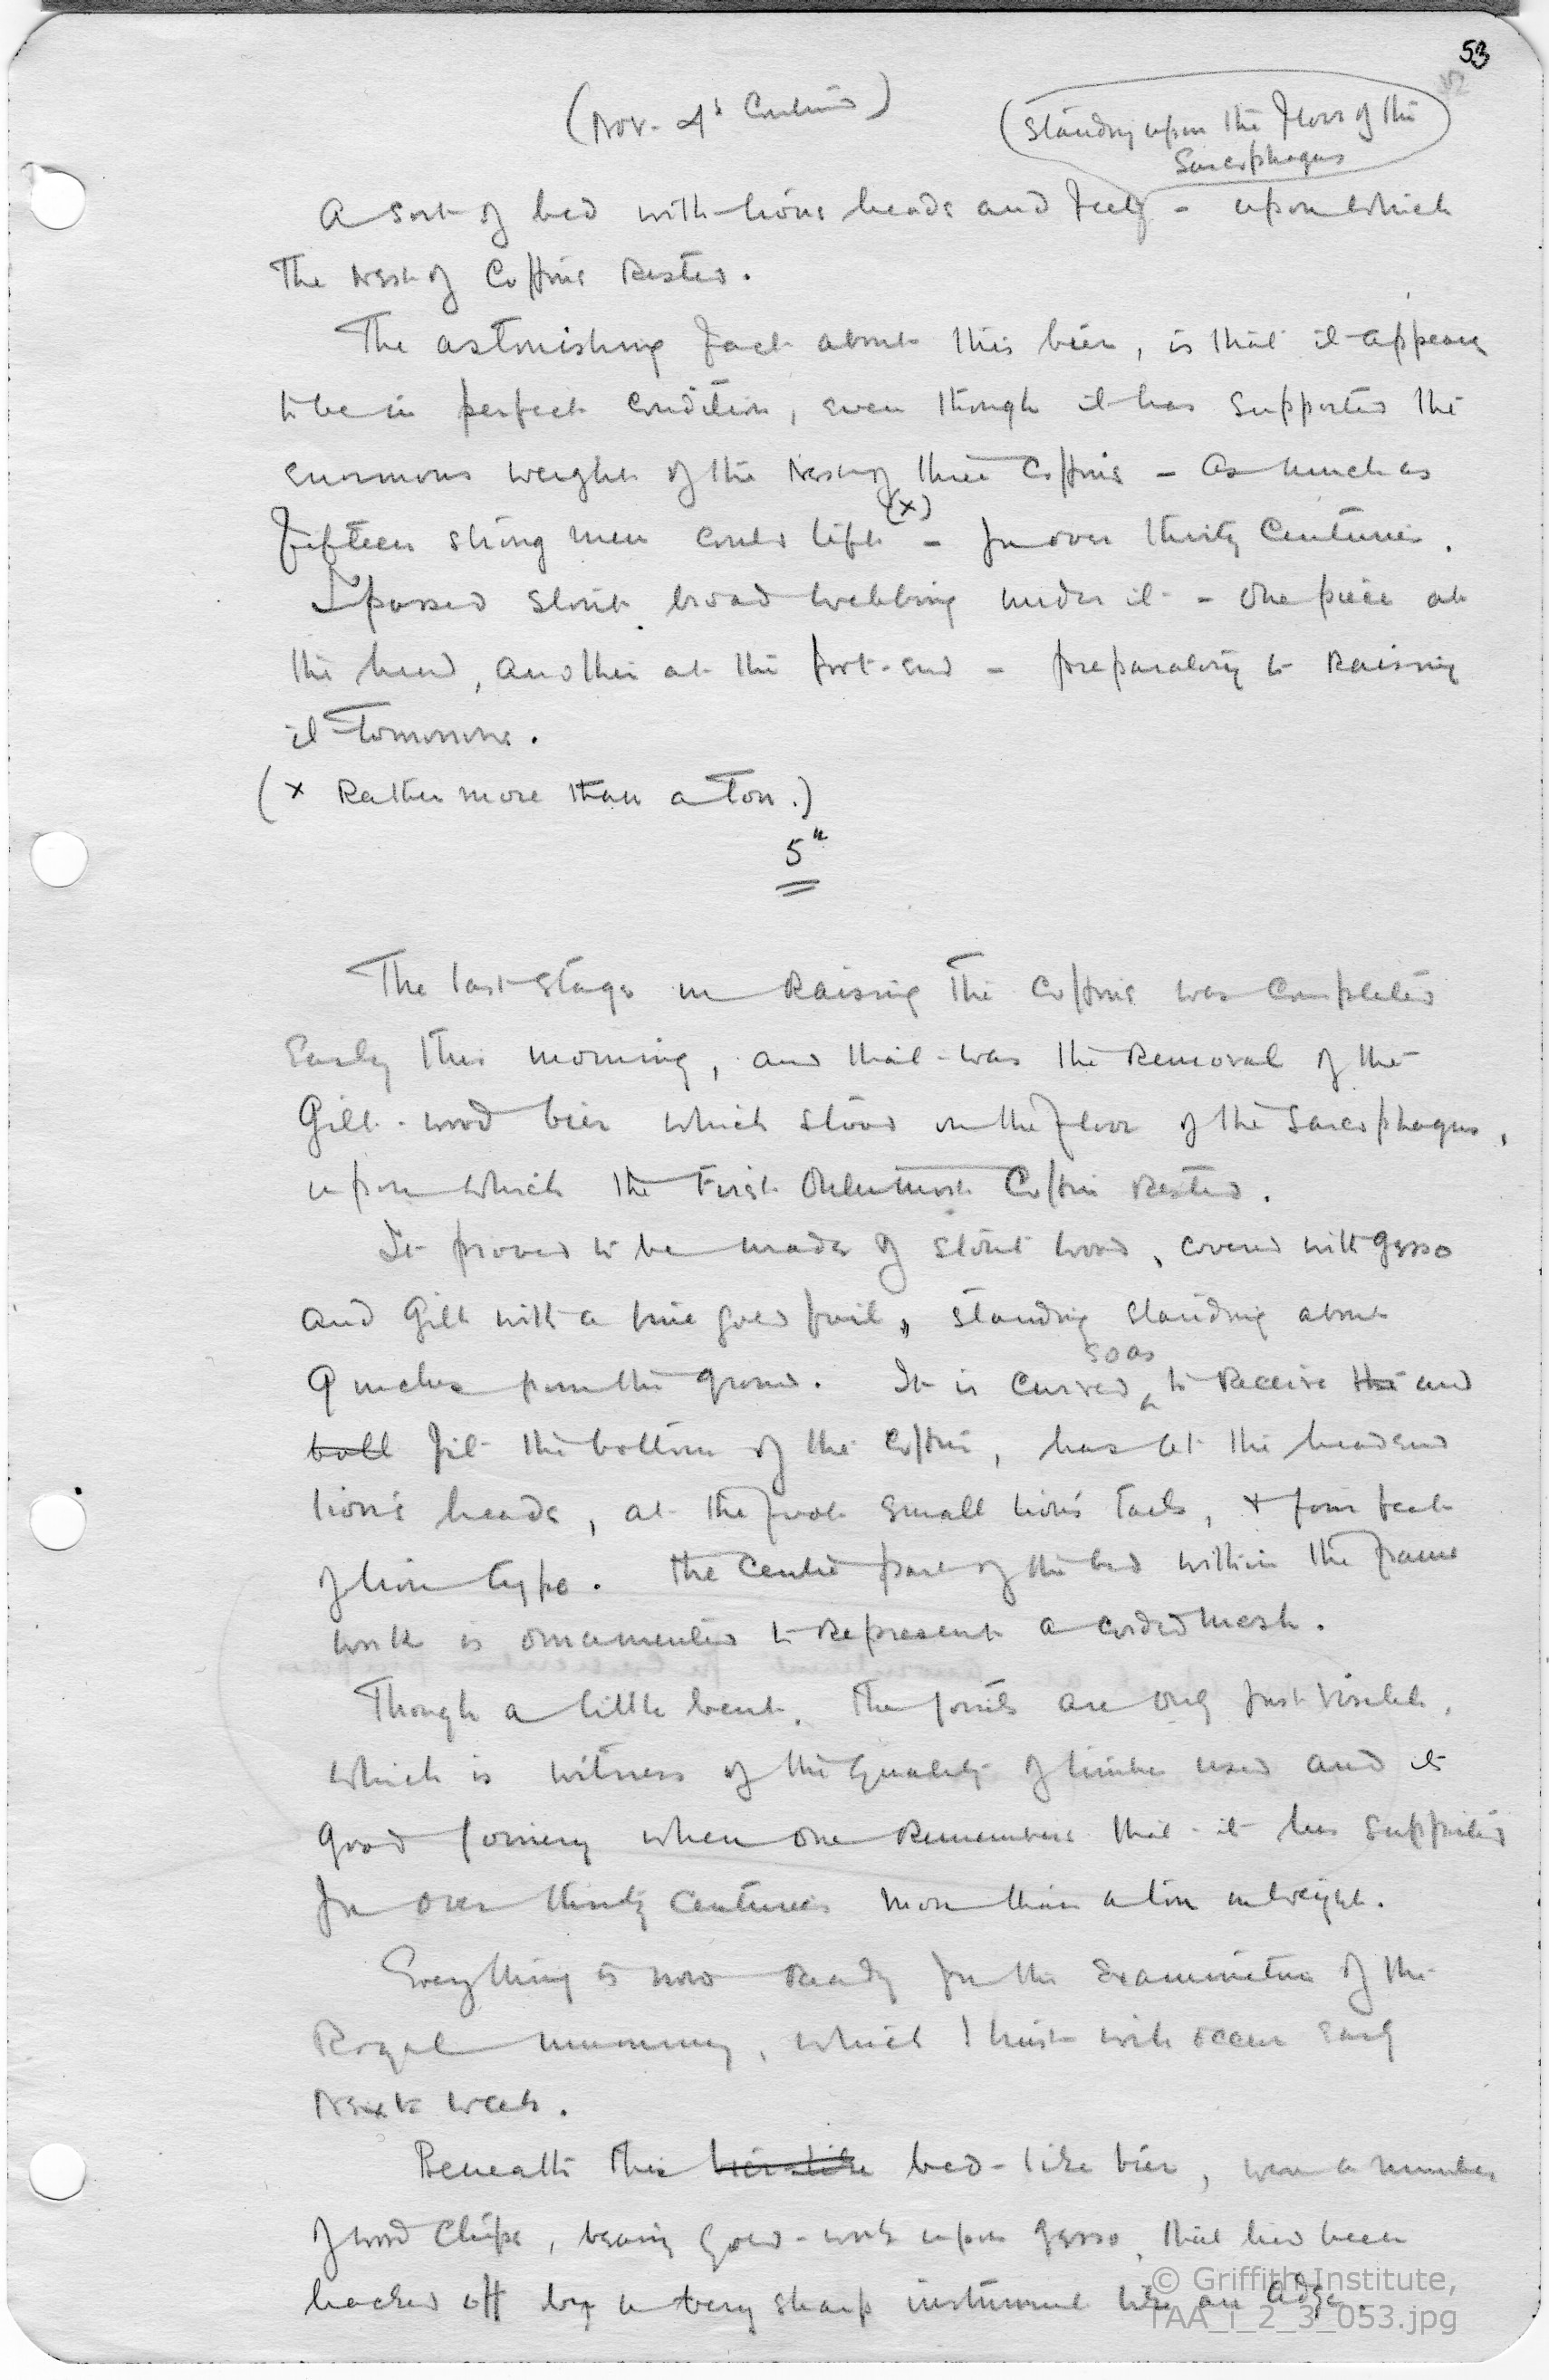 53
(Nov. 4th Continued)
(Standing upon the floor of the
Sarcophagus
A sort of bed with lion's heads and feet - upon which
the nest of coffins rested.
The astonishing fact about this bier, is that it appears
to be in perfect condition, even though it has supported the
enormous weight of the nest of three coffins – as much as
fifteen strong men could lift (x) – for over thirty centuries.
I passed stout broad webbing under it - one piece at
the head, another at the foot-end – preparatory to raising
it tomorrow.
(x Rather more than a ton.)
5th
The last stage in raising the coffins was completed
early this morning, and that was the removal of the
gilt-wood bier which stood on the floor of the sarcophagus,
upon which the First Outermost Coffin rested.
It proved to be made of stout wood, covered with gesso
and gilt with a fine gold foil, standing standing about
9 inches from the ground. It is curved so as to receive the and
ball fit the bottom of the coffin, has at the head end
lion's heads, at the foot small lion's tails, + four feet
of lion type. The centre part of the bed within the frame
work is ornamented to represent a corded mesh.
Though a little bent, the joints are only just visible,
which is witness of the quality of timber used and its
good joinery when one remembers that it has supported
for over thirty centuries more than a ton in weight.
Everything is now ready for the examination of the
Royal mummy, which I trust will occur early
next week.
Beneath this bier-like bed-like bier, were a number
of wood chips, bearing gold-work upon gesso, that had been
hacked off by a very sharp instrument like an adze.
© Griffith Institute,
TAA_i_2_3_053.jpg